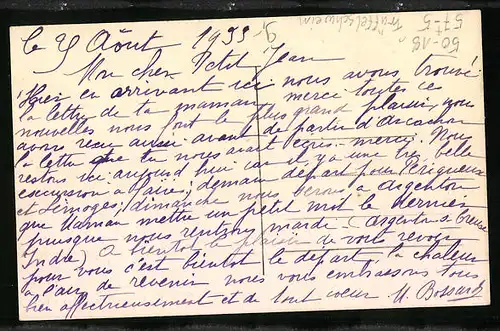 le Août 1933
Mon cher Petit Jean
Hier en arrivant ici nous avons trouvé
la lettre de ta maman merci toutes ces
nouvelles nous font le plus grand plaisir, nous
avons reçu aussi avant de partir d'Arcachon
la lettre que tu nous avait écris - merci. Nous
restons ici aujourd'hui car il y a une très belle
excursion à faire; demain départ pour Périgueux
et Limoges; dimanche nous serons à Argenton
que maman mettre un petit mot le dernier
puisque nous rentrons mardi - (Argenton s. Creuse
Indre) à bientôt le plaisir de vous revoir
pour vous c'est bientôt le départ, la chaleur
a l'air de revenir nous vous embrassons tous
bien affectueusement et de tout coeur M. Bossard
Trüffelschwein
50-18
57-5